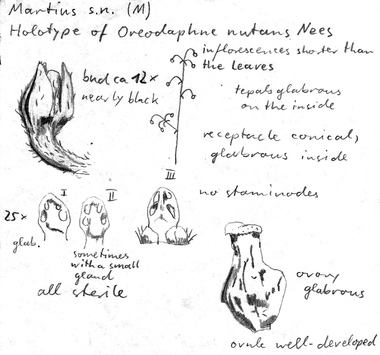 Martius s.n. (M)
Holotype of Oreodaphne nutans Nees
inflorescences shorter than
the leaves
bud ca 12x
nearly black
tepals glabrous
on the inside
receptacle conical,
glabrous inside
III
I
II
no staminodes
25x
glab.
sometimes
with a small
gland
all sterile
ovary
glabrous
ovule well-developed